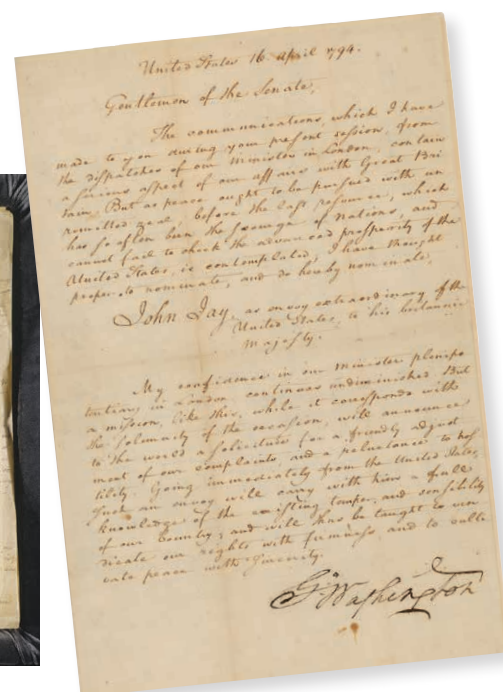 United States 16. April 1794.
Gentlemen of the Senate,
The communications, which I have
made to you during your present session, from
the dispatches of our Minister in London, contain
a serious aspect of our affairs with Great Bri
tain. But as peace ought to be pursued with un
remitted zeal, before the last resource, which
has so often been the scourge of nations, and
cannot fail to check the advanced prosperity of the
United States, is contemplated, I have thought
proper to nominate, and do hereby nominate,
John Jay, as envoy extraordinary of the
United States, to his britannic
majesty.
My confidence in our minister plenipo
tentiary in London continues undiminished. But
a mission, like this, while it corresponds with
the solemnity of the occasion, will announce
to the world a solicitude for a friendly adjust
ment of our complaints, and a reluctance to hos
tility. Going immediately from the United States,
such an envoy will carry with him a full
knowledge of the existing temper, and sensibility
of our Country; and will thus be taught to vin
dicate our rights with firmness, and to culti
vate peace with sincerity.
G:Washington